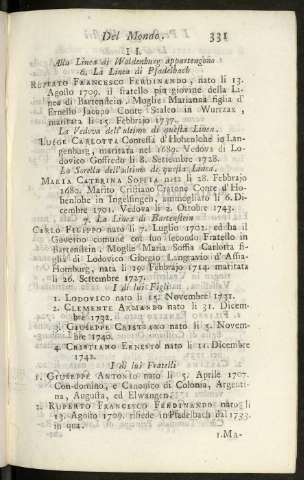 Del Mondo. 331
I I.
Alla Linea di Waldenburg appartengono
6. La Linea di Pfadelbach
RUPERTO FRANCESCO FERDINANDO, nato li 13.
Agosto 1709. il fratello più giovine della Li-
nea di Bartenstein. Moglie Marianna figlia d'
Ernesto Jacopo Conte Staleo in Wurtzak,
maritata li 15. Febbrajo 1737.
La Vedova dell'ultimo di questa Linea.
LUIGI CARLOTTA Contessa d'Hohenlohe in Lan-
genburg, maritata nel 1689. Vedova di Lo-
dovico Goffredo li 8. Settembre 1728.
La Sorella dell'ultimo di questa Linea.
MARIA CATERINA SOFIA nata li 28. Febbrajo
1680. Marito Cristiano Cratone Conte d'Ho-
henlohe in Ingelfingen, ammogliato li 6. De-
cembre 1701. Vedova li 2. Ottobre 1743.
7. La Linea di Bartenstein
CARLO FILIPPO nato li 7. Luglio 1702. ed ha il
Governo comune col suo secondo Fratello in
Bartenstein. Moglie Maria Sofia Carlotta fi-
glia di Lodovico Giorgio Langravio d'Assia-
Homburg, nata li 19. Febbrajo 1714. maritata
li 26. Settembre 1727.
I di lui Figli
1. LODOVICO nato li 15. Novembre 1731.
2. CLEMENTE ARMANDO nato li 31. Dicem-
bre 1732.
3. GIUSEPPE CRISTIANO nato li 5. Novem-
bre 1740.
4. CRISTIANO ERNESTO nato li 11. Dicembre
1742.
I di lui Fratelli
1. GIUSEPPE ANTONIO nato li 5. Aprile 1707.
Con-domino, e Canonico di Colonia, Argenti-
na, Augusta, ed Elwangen.
2. RUPERTO FRANCESCO FERDINANDO nato li
13. Agosto 1709. risiede in Pfadelbach dal 1733.
in qua.
1. Ma-